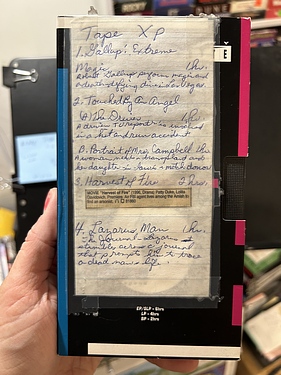 Tape XP
1. Gallup: Extreme
Magic 1 hr.
Robert Gallup performs magic and
death defying dives in Las Vegas.
2. Touched By An Angel
(A) The Driver
A driven TV reporter is involved
in a hit and run accident.
B. Portrait of Mrs. Campbell 1 hr.
A woman, her
daughter in
3. Harvest of Fire 2 hrs.
MOVIE, "Harvest of Fire"; CBS; Drama; Patty Duke, Lolita
Davidovich, Premiere; An FBI agent lives among the Amish to
find an arsonist.
4. Lazarus Man 1 hr.
The Journal Lazarus
stumbles across a journal
that prompts him to trace
a dead man's life.
EP/SLP - 6hrs
LP - 4hrs
SP - 2hrs
E